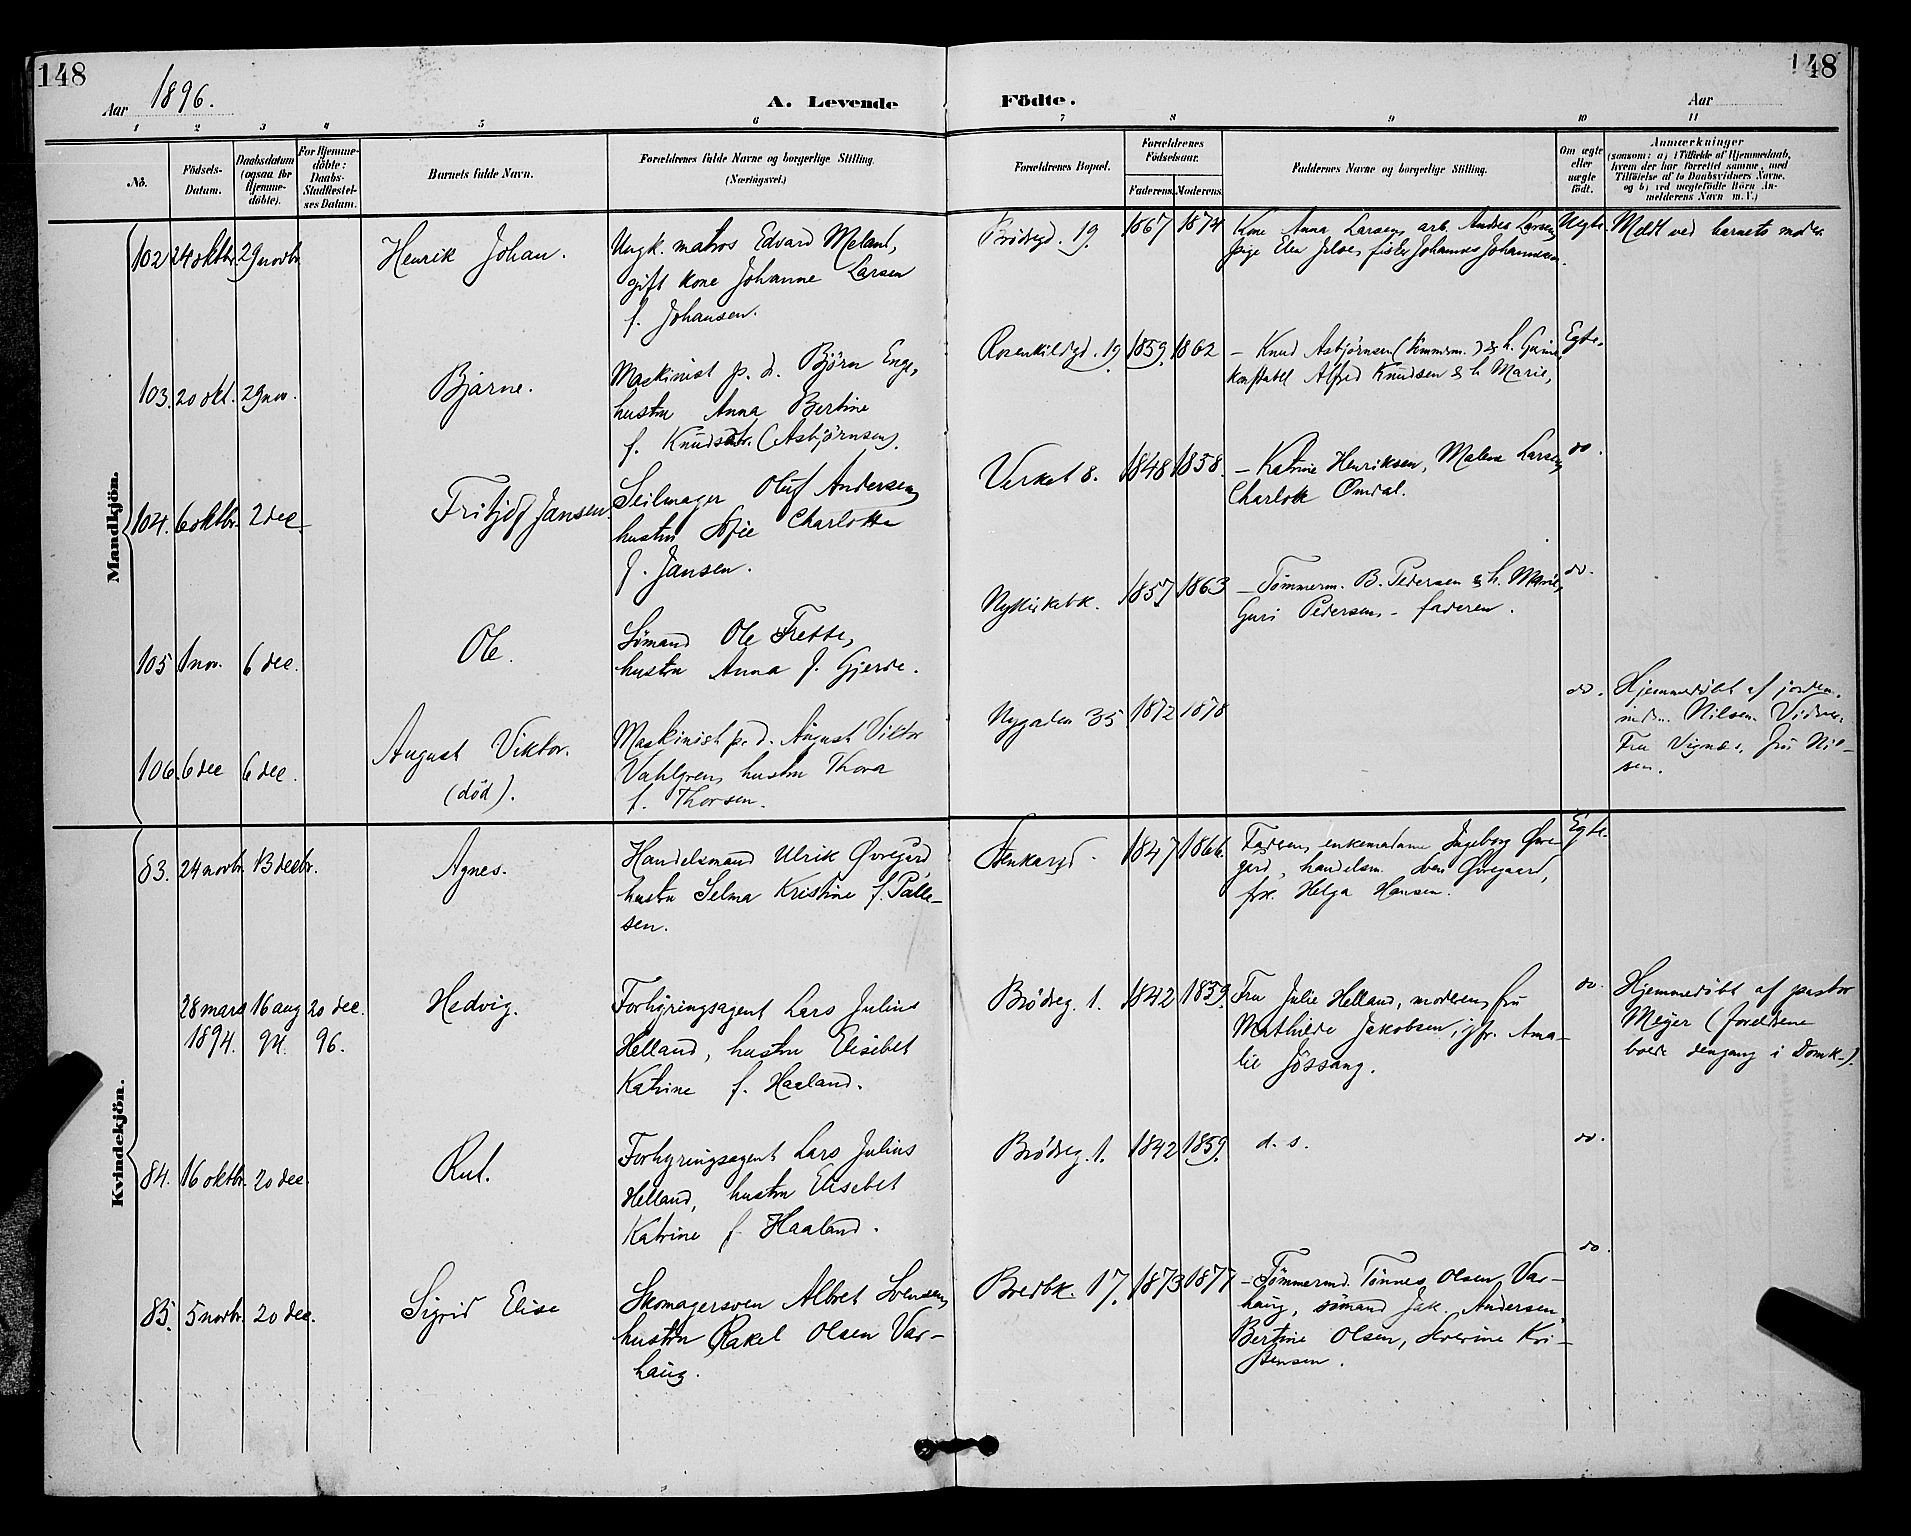 148
148
Aar 1896.
A. Levende Födte.
Aar
1 2 3 4 5 6 7 8 9 10 11
No.
Födsels-Datum.
Daabsdatum (ogsaa for Hjemme-döbte).
For Hjemme-döbte: Daabs-Stadfæstel-ses Datum.
Barnets fulde Navn.
Forældrenes fulde Navne og borgerlige Stilling. (Næringsvei.)
Forældrenes Bopæl.
Forældrenes Födselsaar.
Faderens. Moderens.
Faddernes Navne og borgerlige Stilling.
Om ægte eller uægte födt.
Anmærkninger
(saasom: a) i Tilfælde af Hjemmedaab, hvem der har forrettet samme, med Tilföielse af to Daabsvidners Navne, og b) ved uægtefödte Börn An-melderens Navn m. V.)
Mandkjön.
102 24 oktbr. 29 novbr. Henrik Johan.
Ungk. matros Edvard Meland,
gift kone Johanne Larsen
f. Johansen.
Brødregd. 19. 1867 1874
Kone Anna Larsen, arb. Andres Larsen,
pige Elen, fisker Johannes Johannesen.
Uegte. Meldt ved barnets moder
103. 20 okt. 29 nov. Bjarne.
Maskinist p. d. Bjørn Enge,
hustru Anna Bertine
f. Knudsdtr. (Asbjørnsen).
Rosenkildegd. 19. 1859. 1862
– Knud Asbjørnsen (tømmerm.) & h. Gurine
konstabel Alfred Knudsen & h. Marie,
Egte.
104. 6 oktbr. 2 dec. Fritjof Jansen.
Seilmager Oluf Andersen,
hustru Sofie Charlotte
f. Jansen.
Verket 8. 1848 1858.
– Katrine Henriksen, Malene Larsen,
Charlotte Omdal.
do.
105 1 nov. 6 dec. Ole.
Sømand Ole Frette,
hustru Anna f. Gjerde.
Nykirkebk. 1857 1863
– Tømmerm. B. Pedersen & h. Marie,
Guri Pedersen, – faderen.
do.
106. 6 dec 6 dec. August Viktor.
(død).
Maskinist p. d. August Viktor
Vahlgren, hustru Thora
f. Thorsen.
Nygaden 35 1872 1878
do.
Hjemmedøbt af jordem.
mdm. Nilsen. Vidner
Fru Vignes, fru Nil-
sen.
Kvindekjön.
83. 24 novbr. 13 decbr. Agnes.
Handelsmand Ulrik Øvregård
hustru Selma Kristine f. Palle-
sen.
Stenkargd. 1847 1866.
Faderen, enkemadame Ingeborg Øvre-
gård, handelsm. Sven Øvregaard,
frk. Helga Hansen.
Egte.
28 mars 16 aug 20 dec.
1894. 94. 96.
Hedvig.
Forhyringsagent Lars Julius
Helland, hustru Elisebet
Katrine f. Haaland.
Brødreg. 1. 1842 1859.
Fru Julie Helland, moderen, fru
Mathilde Jakobsen, jfr. Ama-
lie Jøssang.
do.
Hjemmedøbt af pastor
Meyer (forældrene
boede dengang i Domk.).
84. 16 oktbr. 20 dec. Rut.
Forhyringsagent Lars Julius
Helland, hustru Elisebet
Katrine f. Haaland.
Brødreg. 1. 1842 1859.
d. s.
do.
85. 5 novbr. 20 dec. Sigrid Elise
Skomagersven Albret Svensen,
hustru Rakel Olsen Var-
haug.
Bredbk. 17. 1873 1877
– Tømmermd. Tønnes Olsen Var-
haug, sømand Jak. Andersen,
Bertine Olsen, Severine Kri-
stensen.
do.